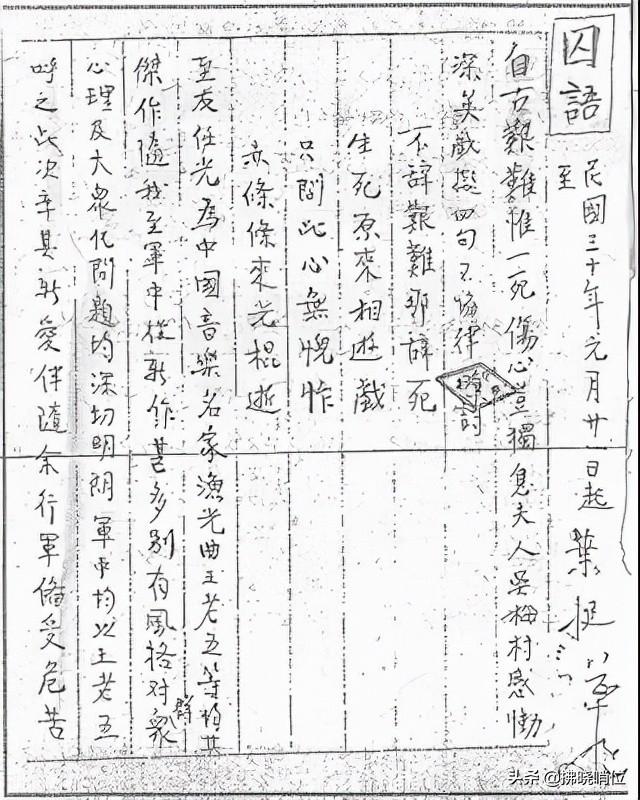 囚語
民國三十年元月廿一日起 葉挺
至
自古艱難惟一死傷心豈獨息夫人吳梅村感慟
深矣戲擬四句不協律
不辭艱難那辭死
生死原來相遊戲
只問此心無愧怍
赤條條來光棍逝
至友任光為中國音樂名家漁光曲王老五等均其
傑作隨我至軍中後新作甚多別有風格对群衆
心理及大衆化問題均深切明朗軍中均以王老五
呼之此次率其新愛伴隨余行軍備受危苦
头条 @拂晓哨位